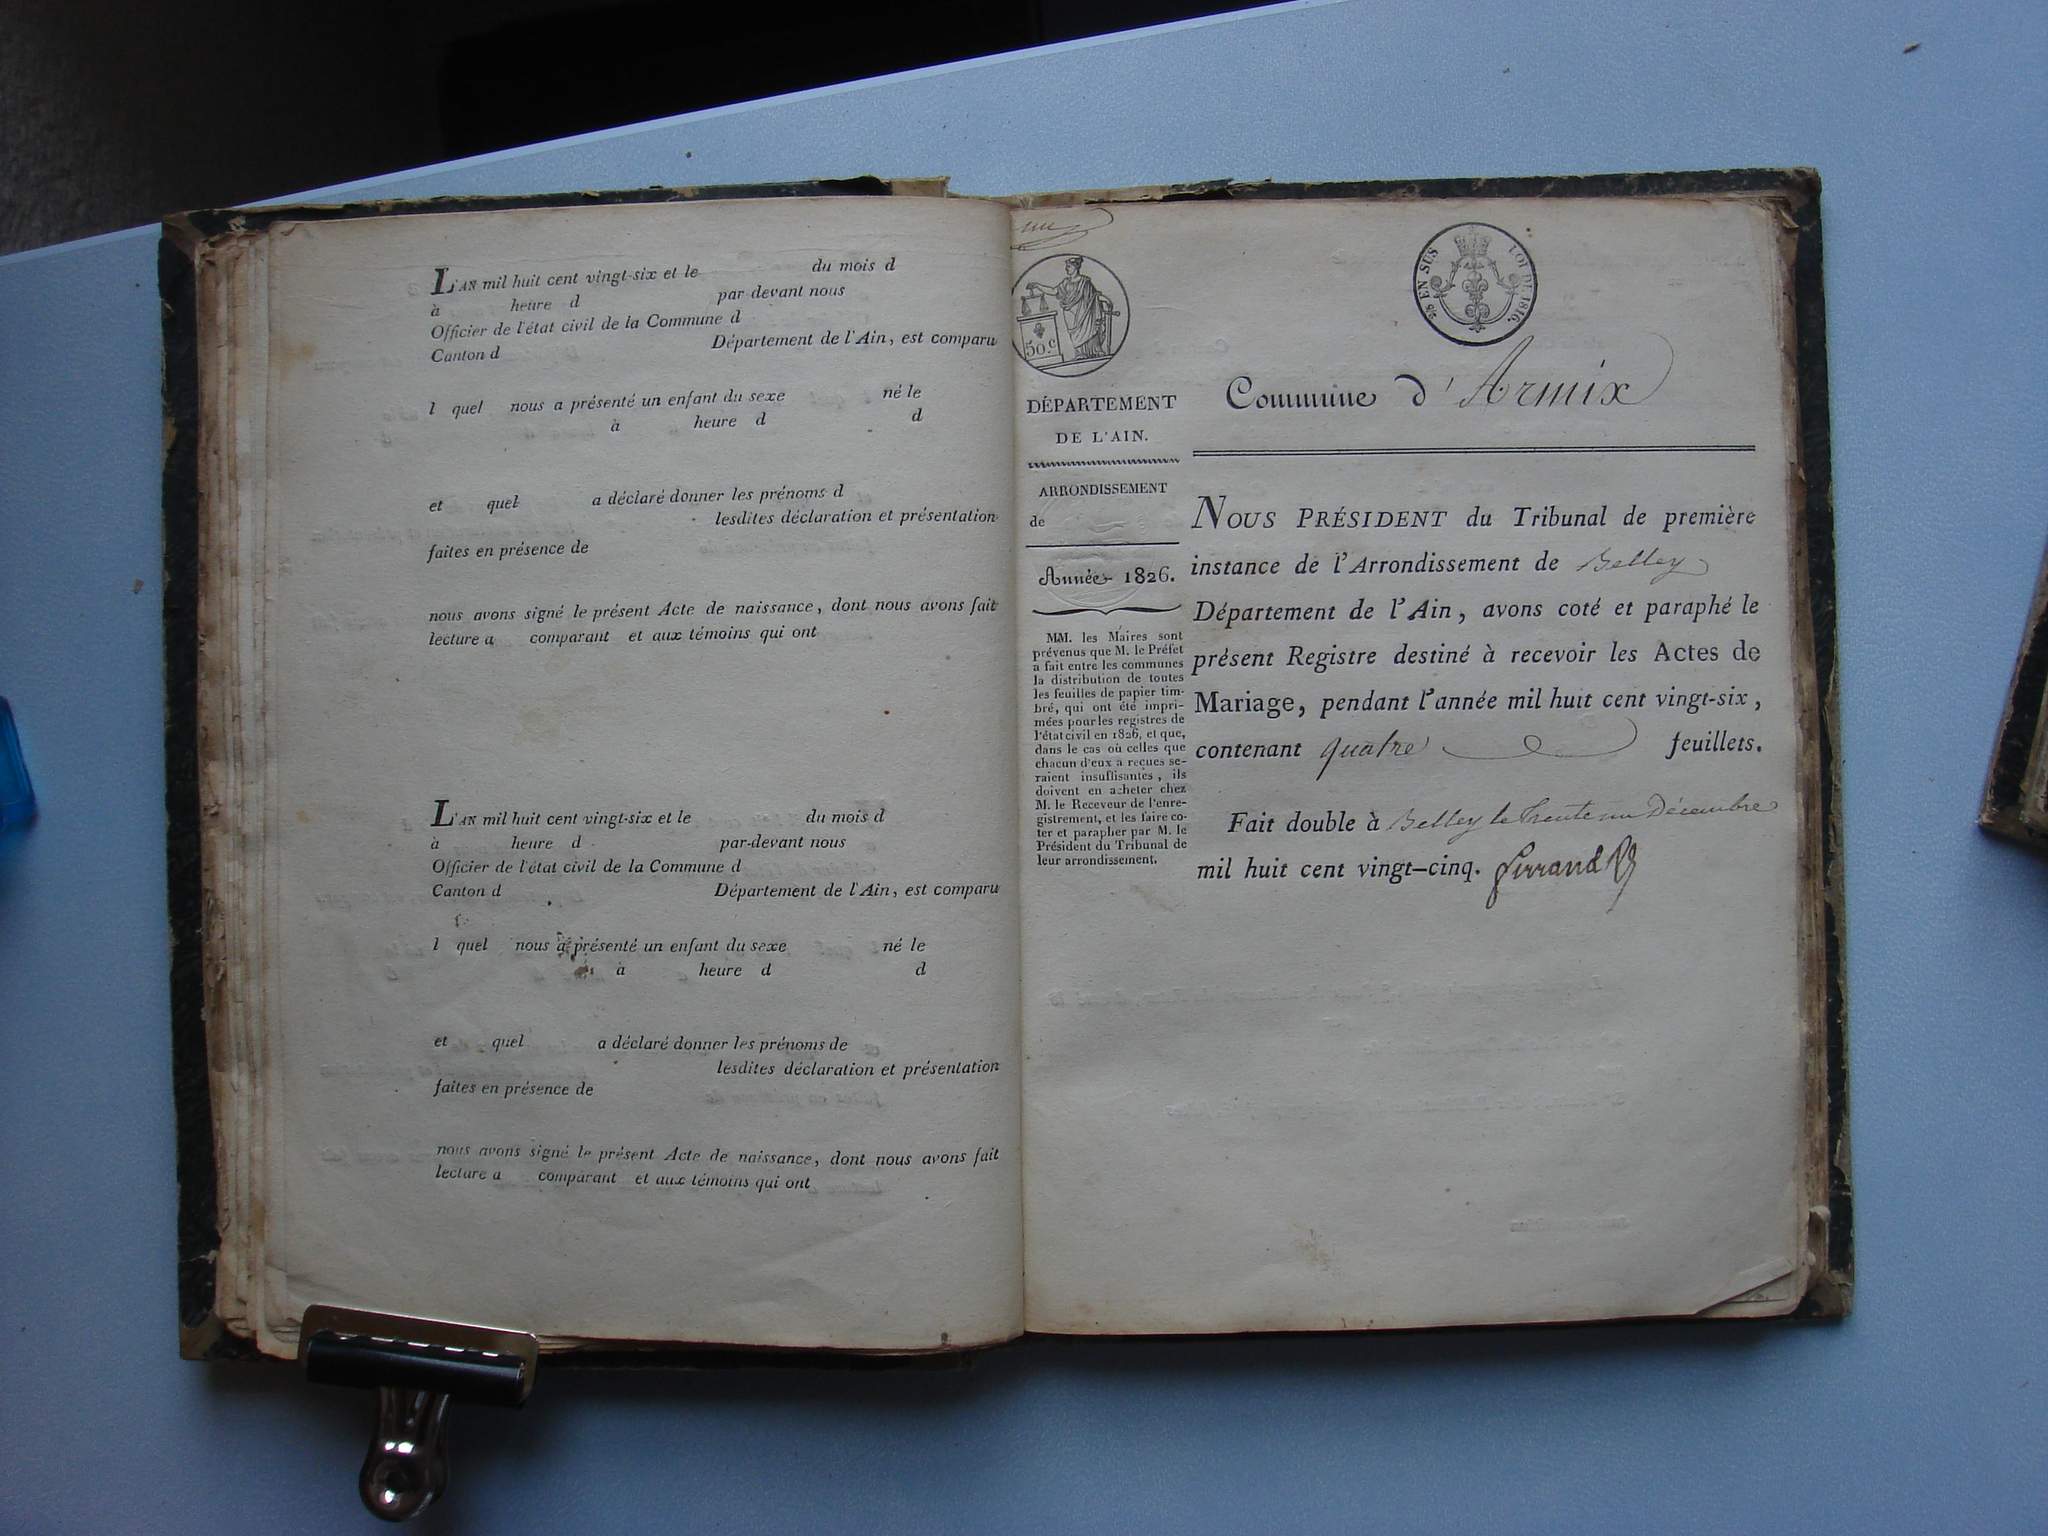 L'AN mil huit cent vingt-six et le du mois d
à heure d par-devant nous
Officier de l'état civil de la Commune d
Canton d Département de l'Ain, est comparu
l quel nous a présenté un enfant du sexe né le
à heure d d
et quel a déclaré donner les prénoms d
lesdites déclaration et présentation
faites en présence de
nous avons signé le présent Acte de naissance, dont nous avons fait
lecture a comparant et aux témoins qui ont
L'AN mil huit cent vingt-six et le du mois d
à heure d par-devant nous
Officier de l'état civil de la Commune d
Canton d Département de l'Ain, est comparu
l quel nous a présenté un enfant du sexe né le
à heure d d
et quel a déclaré donner les prénoms de
lesdites déclaration et présentation
faites en présence de
nous avons signé le présent Acte de naissance, dont nous avons fait
lecture a comparant et aux témoins qui ont
50.c
EN SUS LOI DE 1816.
DÉPARTEMENT
DE L'AIN.
ARRONDISSEMENT
de
Année 1826.
MM. les Maires sont
prévenus que M. le Préfet
a fait entre les communes
la distribution de toutes
les feuilles de papier tim-
bré, qui ont été impri-
mées pour les registres de
l'état civil en 1826, et que,
dans le cas où celles que
chacun d'eux a reçues se-
raient insuffisantes, ils
doivent en acheter chez
M. le Receveur de l'enre-
gistrement, et les faire co-
ter et parapher par M. le
Président du Tribunal de
leur arrondissement.
Commune d'Armix
NOUS PRÉSIDENT du Tribunal de première
instance de l'Arrondissement de Belley
Département de l'Ain, avons coté et paraphé le
présent Registre destiné à recevoir les Actes de
Mariage, pendant l'année mil huit cent vingt-six,
contenant quatre feuillets.
Fait double à Belley le trente un Décembre
mil huit cent vingt-cinq. Ferrand